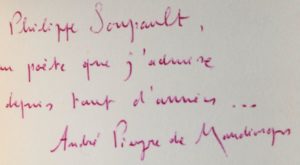 Philippe Soupault,
un poète que j'admire
depuis tant d'années ...
André Pieyre de Mandiargues